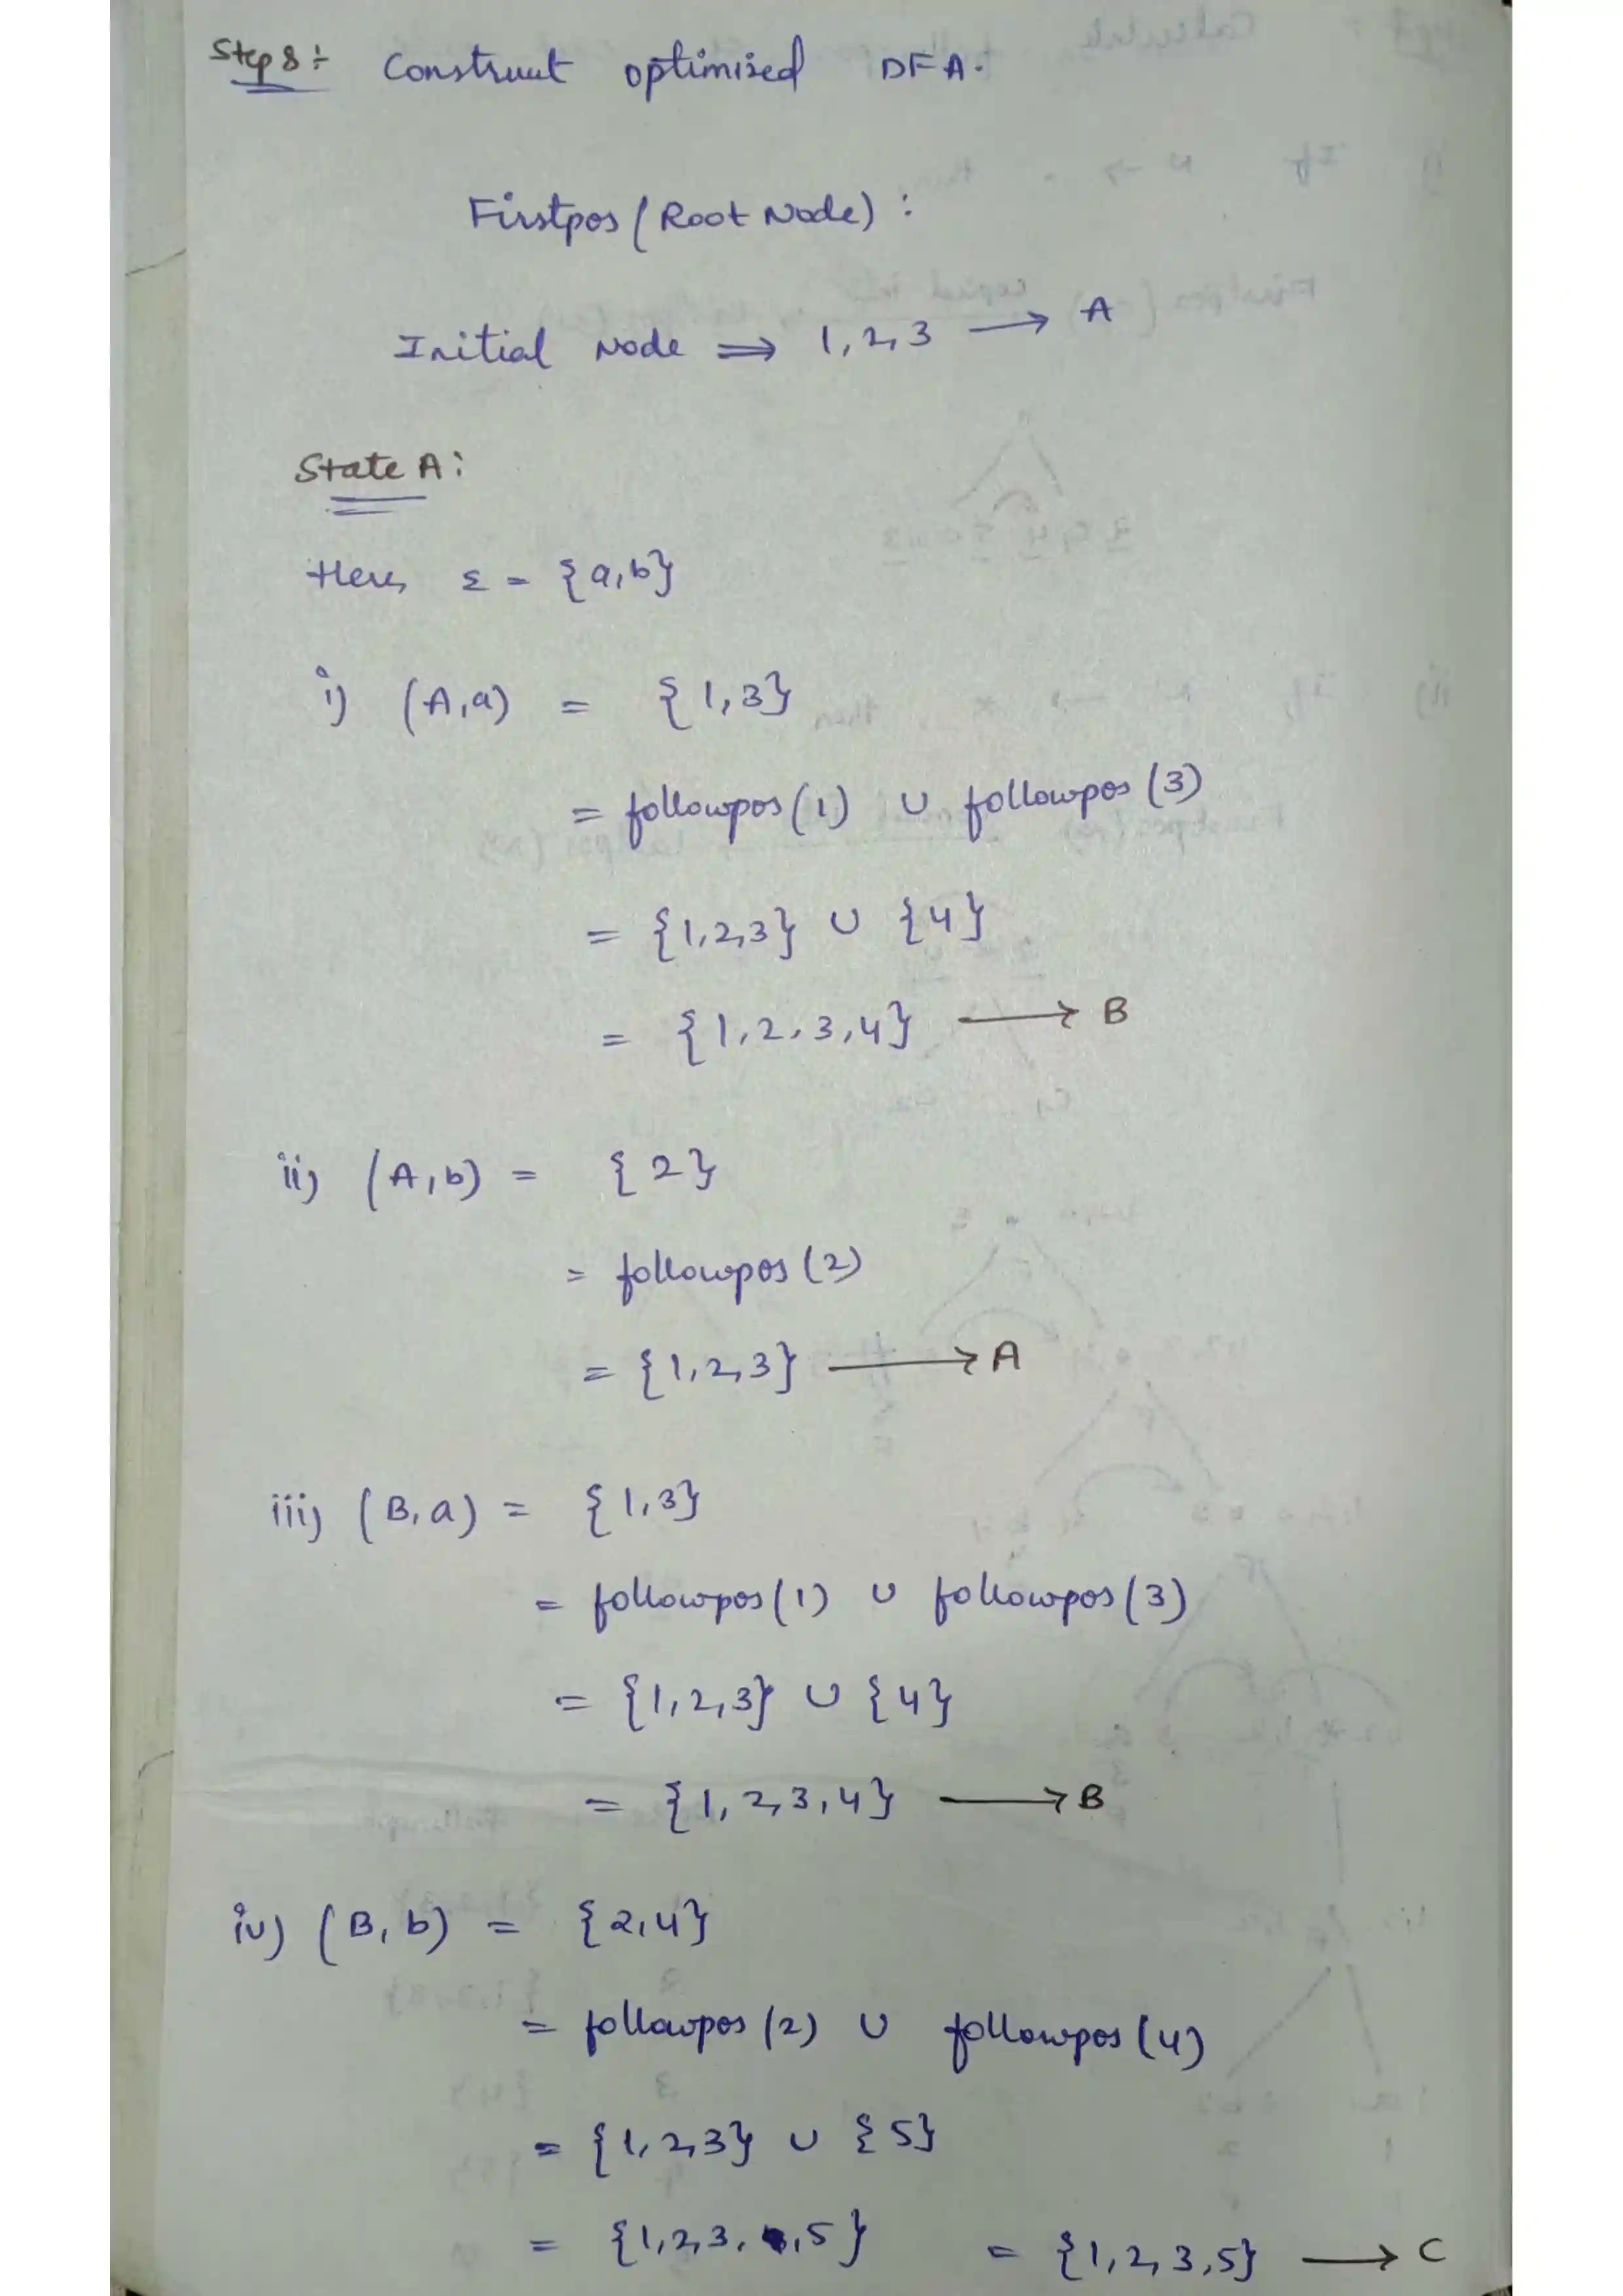 Step 8 :- Construct optimised DFA.
Firstpos (Root Node) :
Initial Node ⇒ 1,2,3 → A
State A :
Here, Σ = {a,b}
i) (A,a) = {1,3}
= followpos(1) ∪ followpos(3)
= {1,2,3} ∪ {4}
= {1,2,3,4} → B
ii) (A,b) = {2}
= followpos(2)
= {1,2,3} → A
iii) (B,a) = {1,3}
= followpos(1) ∪ followpos(3)
= {1,2,3} ∪ {4}
= {1,2,3,4} → B
iv) (B,b) = {2,4}
= followpos(2) ∪ followpos(4)
= {1,2,3} ∪ {5}
= {1,2,3, ,5} = {1,2,3,5} → C